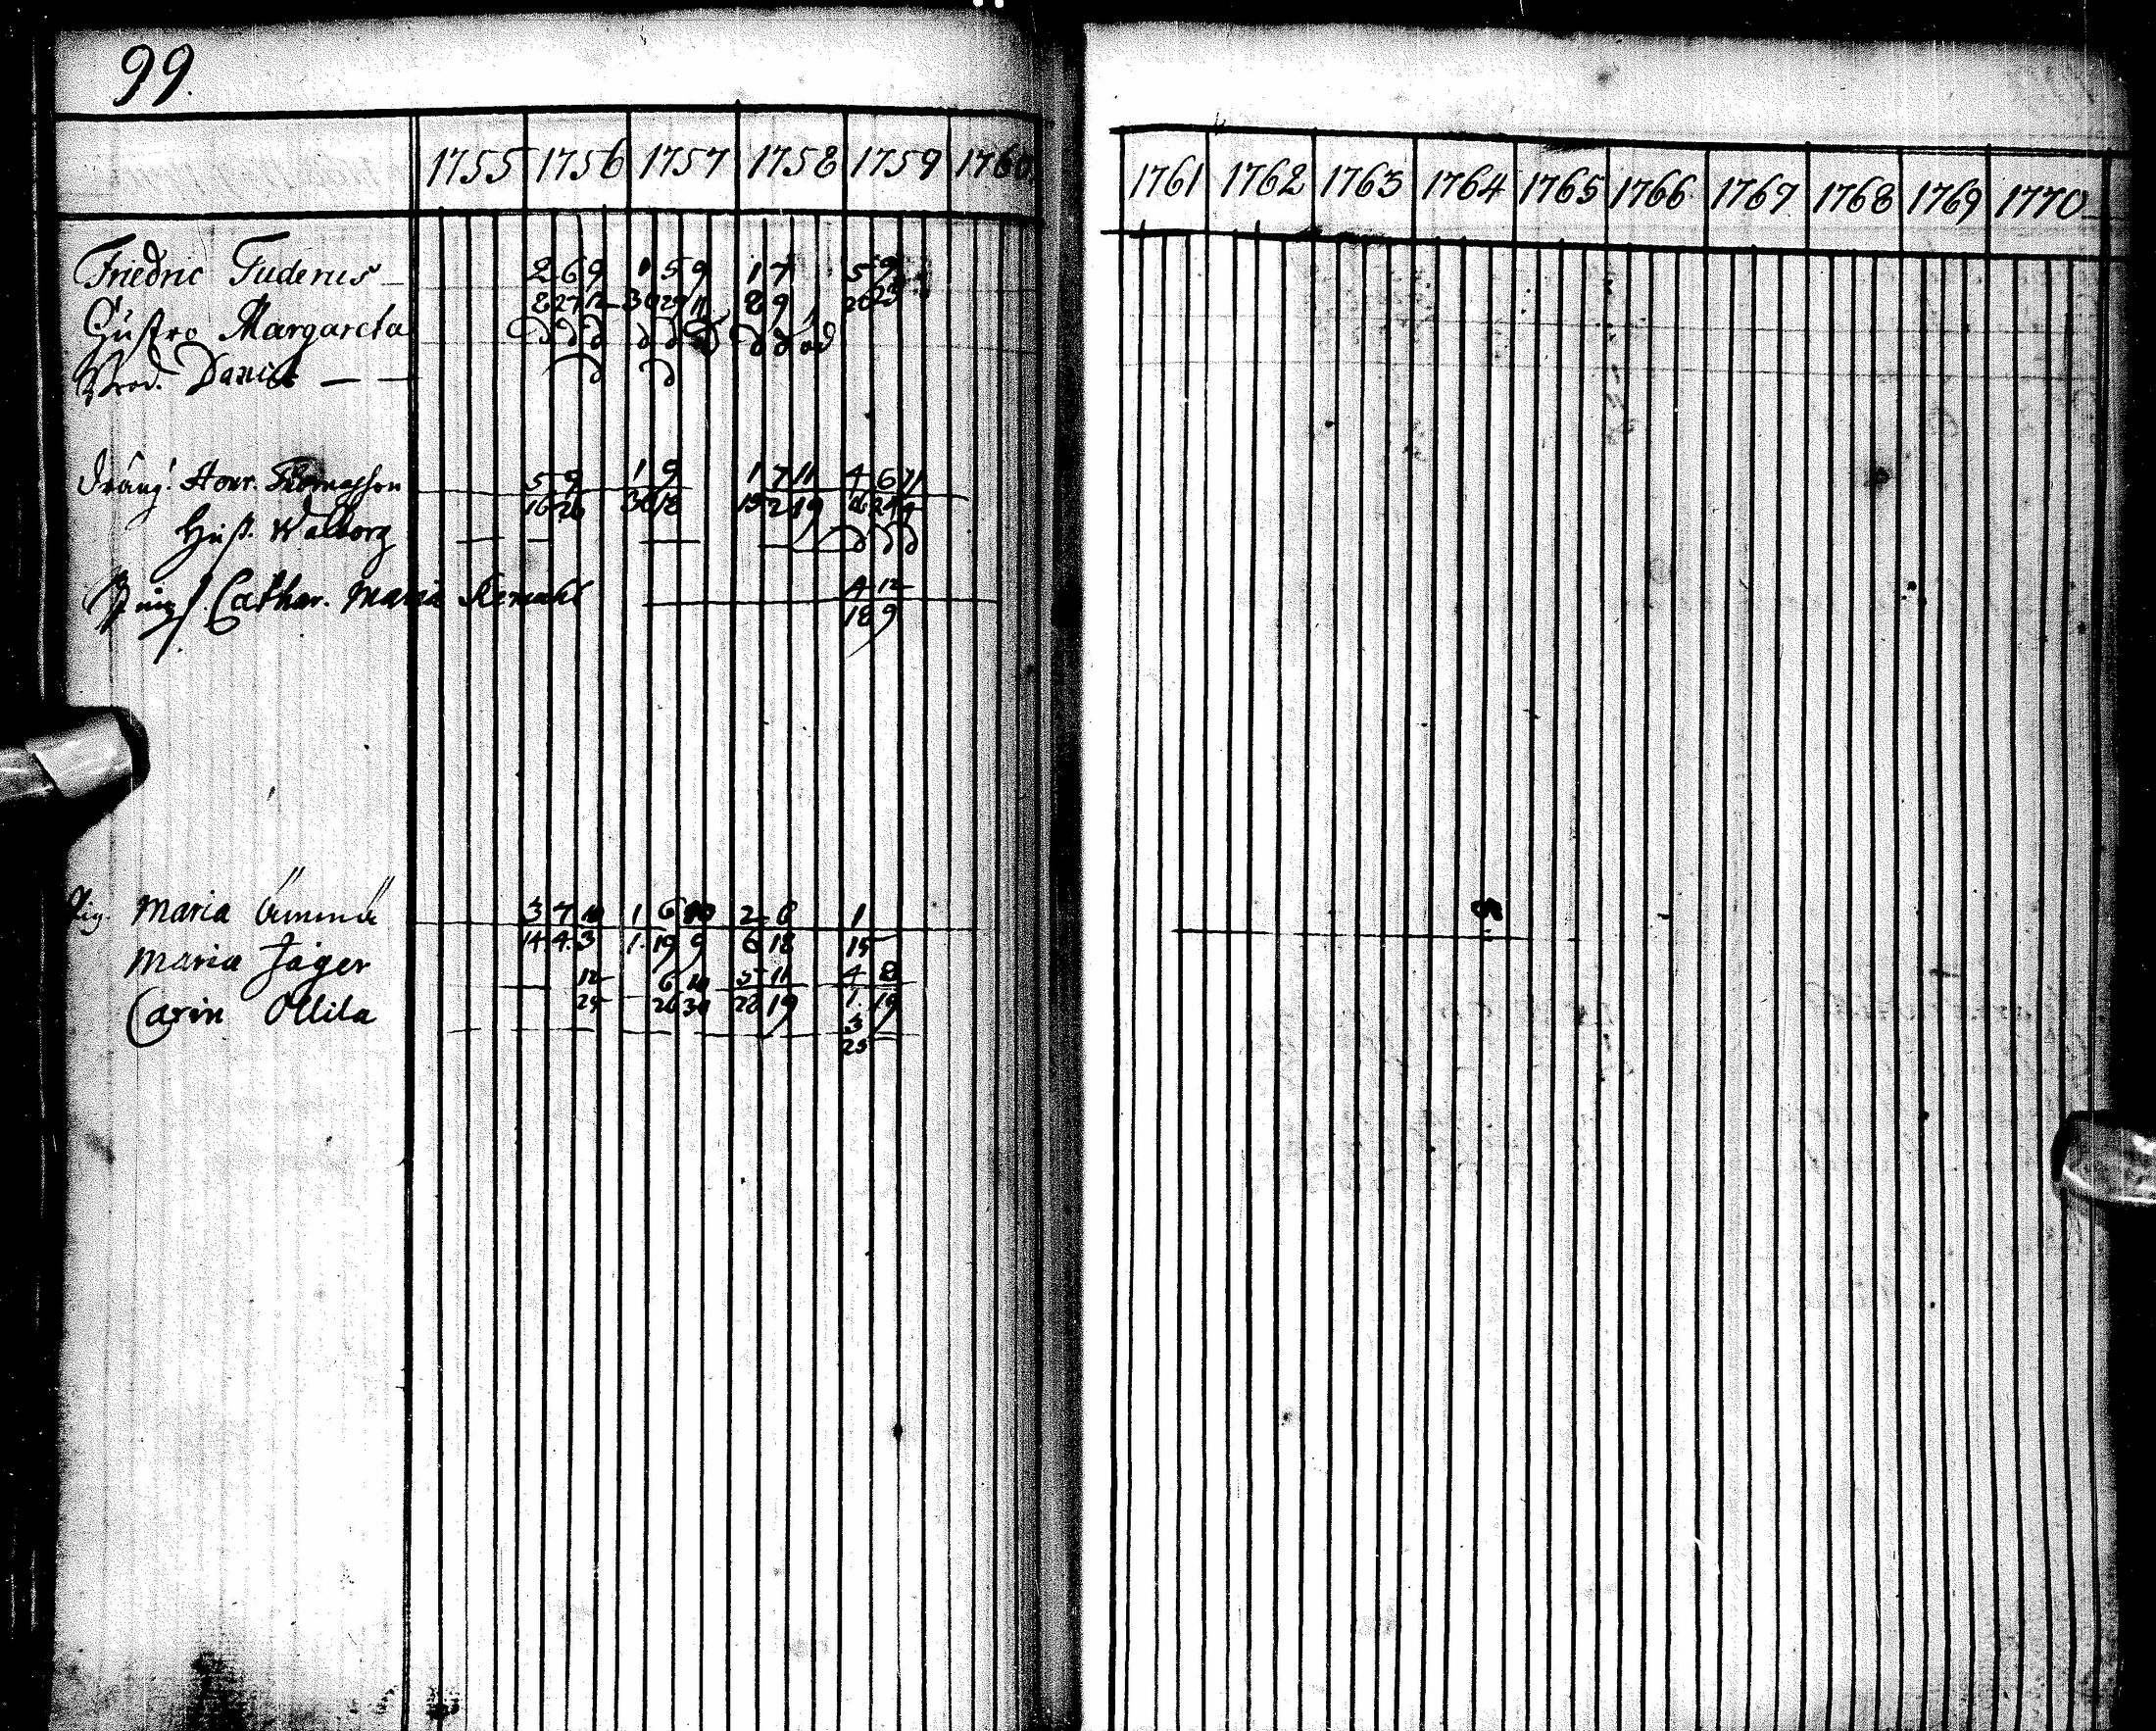 99.
1755 1756 1757 1758 1759 1760
1761 1762 1763 1764 1765 1766 1767 1768 1769 1770
Friedric Tuderus 2 6 9 1 5 9 1 7 5 9
8 27 12 30 29 11 8 9 20 23
Hustro Margareta
Daniel
Dräng. Thomasson 5 9 1 9 1 7 11 4 6 11
16 26 30 18 15 2 19 16 24 4
Hust. Walborg
Cathar. Maria 4 12
18 9
Pig. Maria 3 7 10 1 6 10 2 6 1
14 4 3 1 19 9 6 18 15
Maria Jäger 12 6 10 5 11 4 8
29 26 30 28 19 1 19
Carin Ollila 3
25